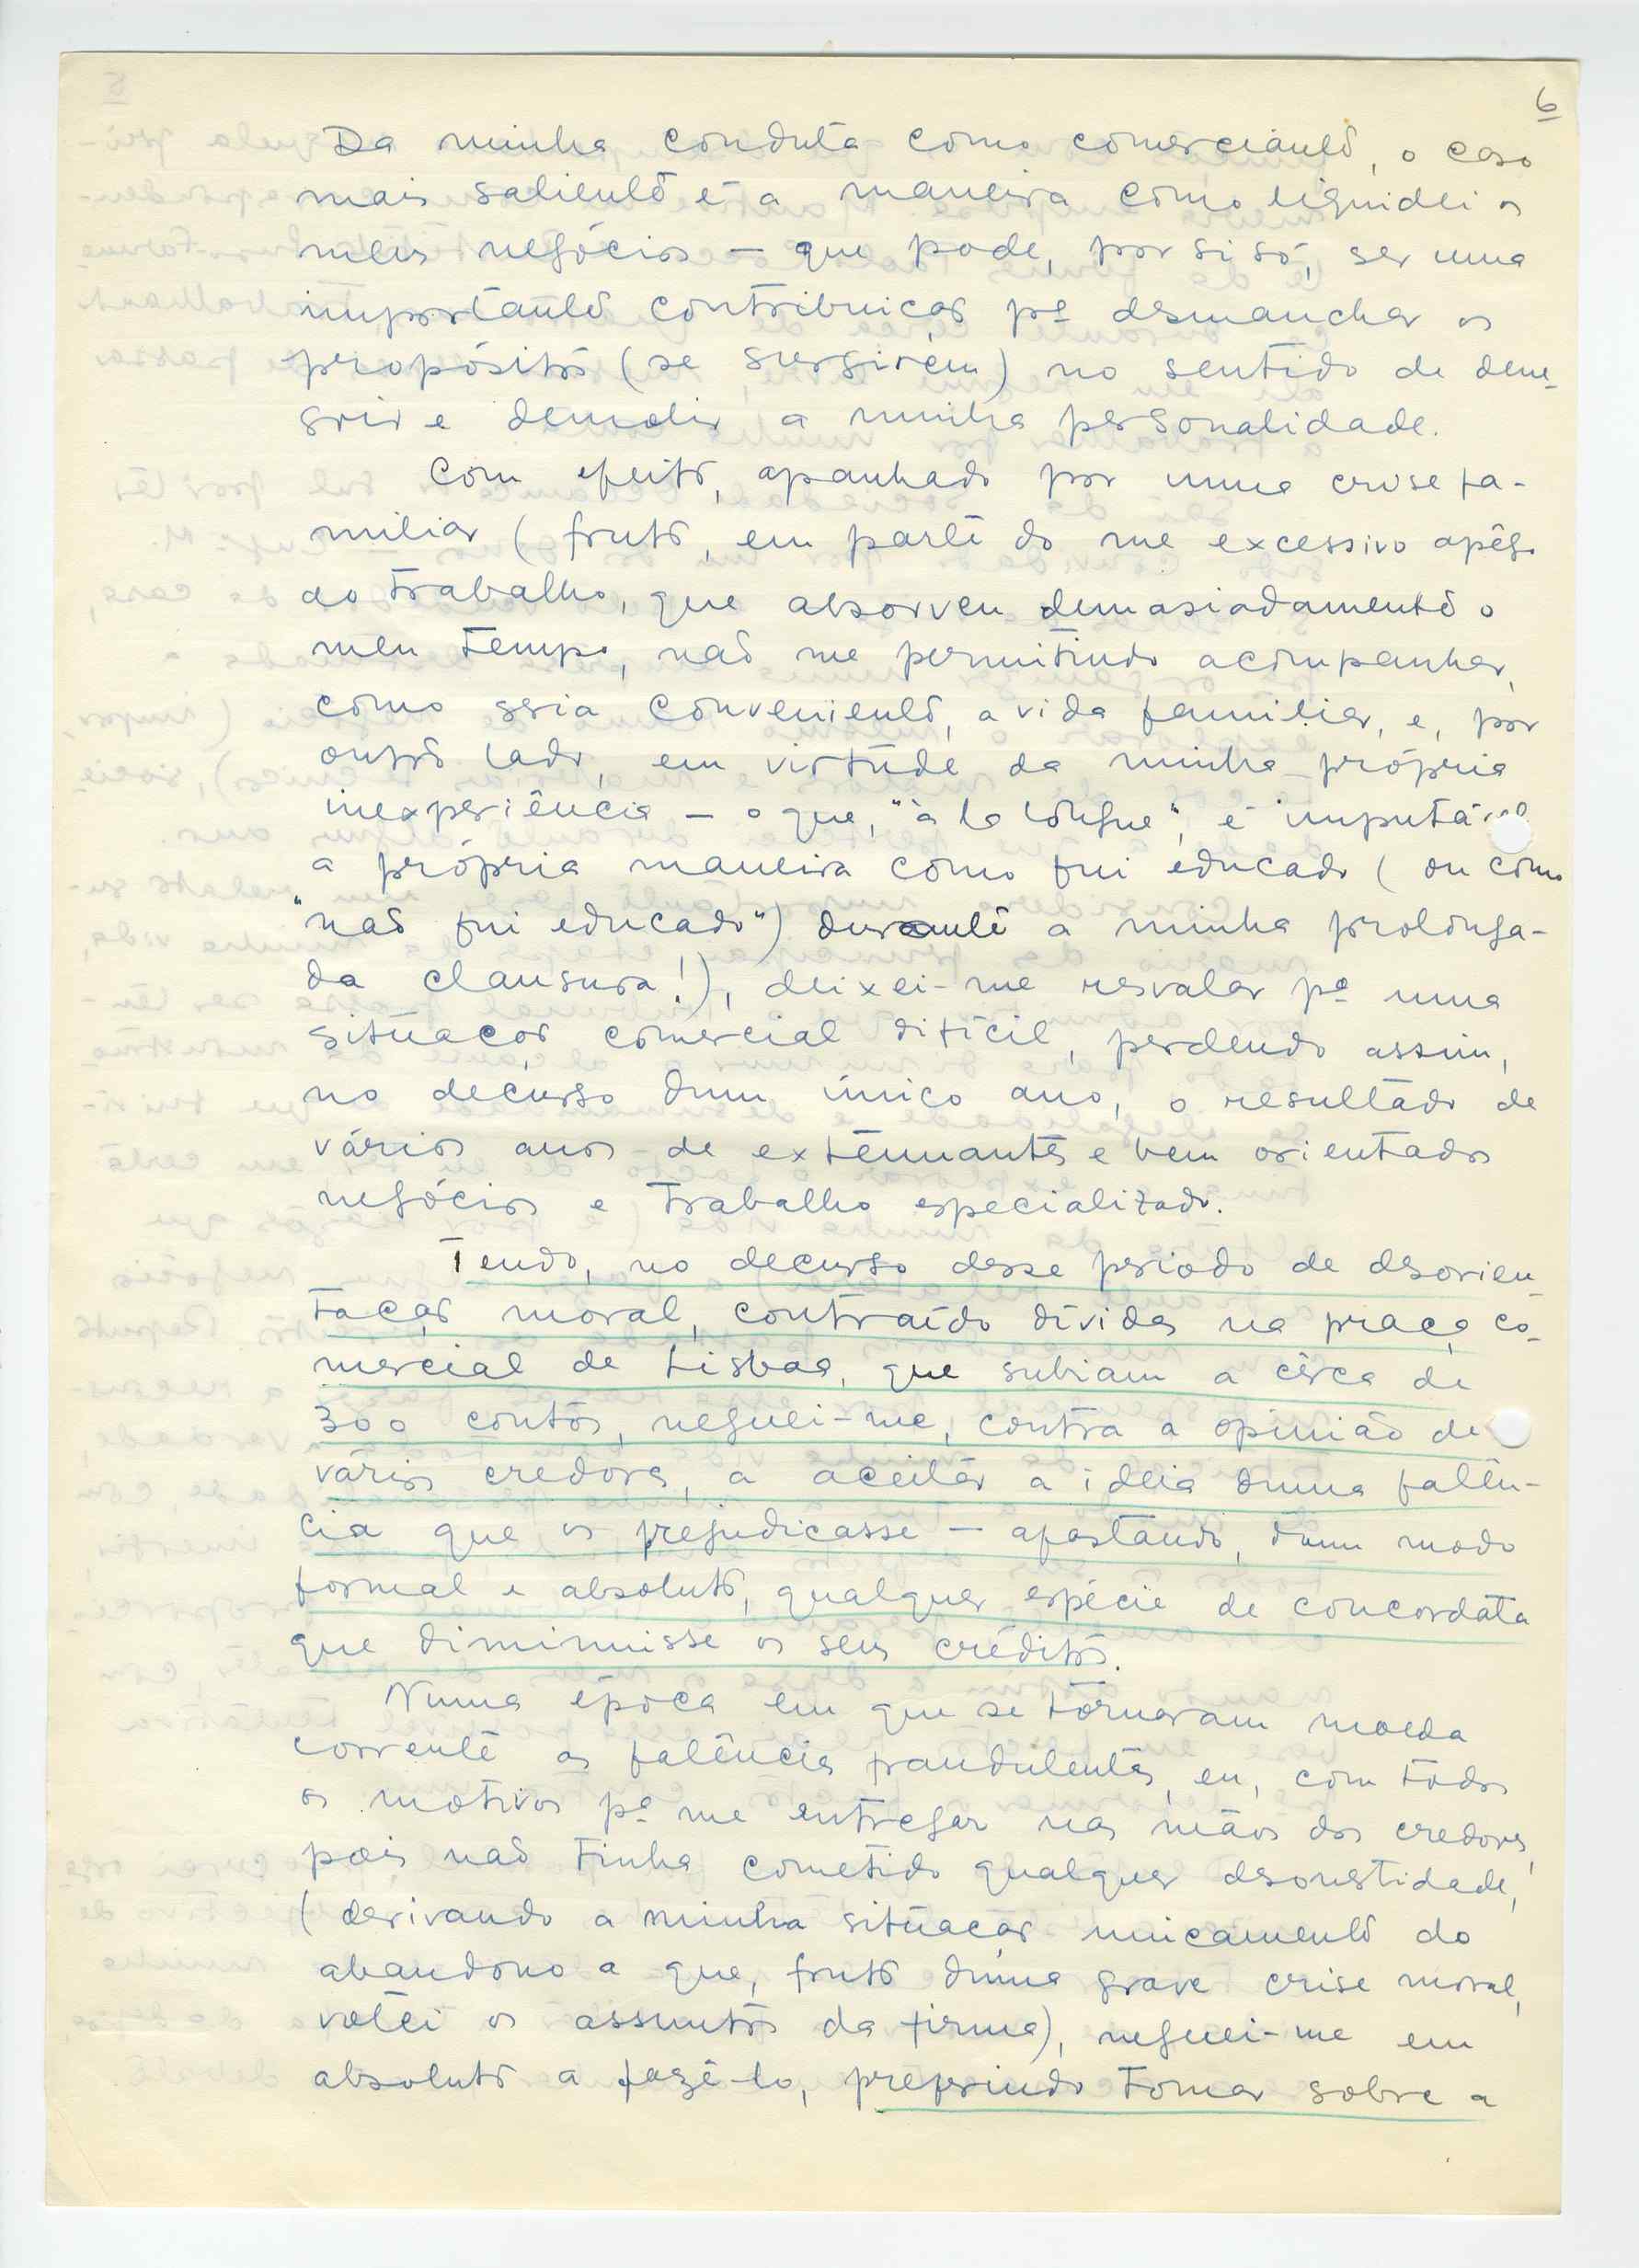 6
Da minha conduta como comerciante, o caso
mais saliente é a maneira como liquidei os
meus negócios — que pode, por si só, ser uma
importante contribuição pª desmanchar os
propósitos (se surgirem) no sentido de dene-
grir e demolir a minha personalidade.
Com efeito, apanhado por uma crise fa-
miliar (fruto, em parte do me excessivo apêgo
ao trabalho, que absorveu demasiadamente o
meu tempo, não me permitindo acompanhar,
como seria conveniente, a vida familiar, e, por
outro lado, em virtude da minha própria
inexperiência — o que, "à la longue", é imputável
a própria maneira como fui educado (ou como
"não fui educado") durante a minha prolonga-
da clausura!), deixei-me resvalar pª uma
situação comercial difícil, perdendo assim,
no decurso dum único ano, o resultado de
vários anos de extenuantes e bem orientados
negócios e trabalho especializado.
Tendo, no decurso desse periodo de desorien-
tação moral, contraído dívidas na praça co-
mercial de Lisboa, que subiam a cêrca de
300 contos, neguei-me, contra a opinião de
vários credores, a aceitar a ideia duma falên-
cia que os prejudicasse — afastando, dum modo
formal e absoluto, qualquer espécie de concordata
que diminuisse os seus créditos.
Numa época em que se tornaram moeda
corrente as falências fraudulentas, eu, com todos
os motivos pª me entregar nas mãos dos credores,
pois não tinha cometido qualquer desonestidade,
(derivando a minha situação unicamente do
abandono a que, fruto duma grave crise moral,
votei os assuntos da firma), neguei-me em
absoluto a fazê-lo, preferindo tomar sobre a